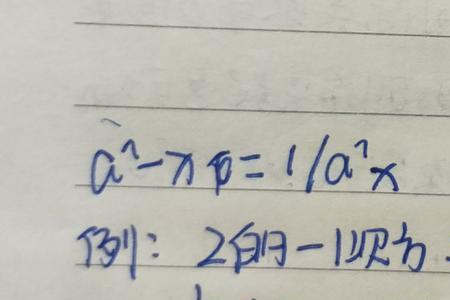 a^-x = 1/a^x
例: 2的-1次方